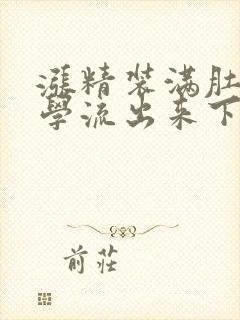 漲精装满肚
學流出来下
前莊